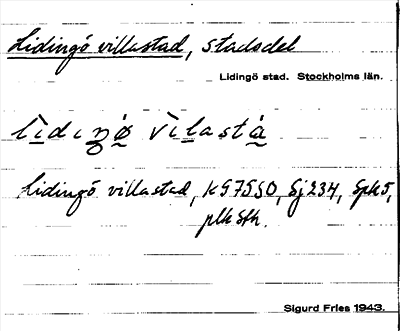 Lidingö villastad, stadsdel
Lidingö stad. Stockholms län.
lìdıŋø vìlastà
Lidingö villastad, k97550, Sj234, Spk5,
plk Sth.
Sigurd Fries 1943.